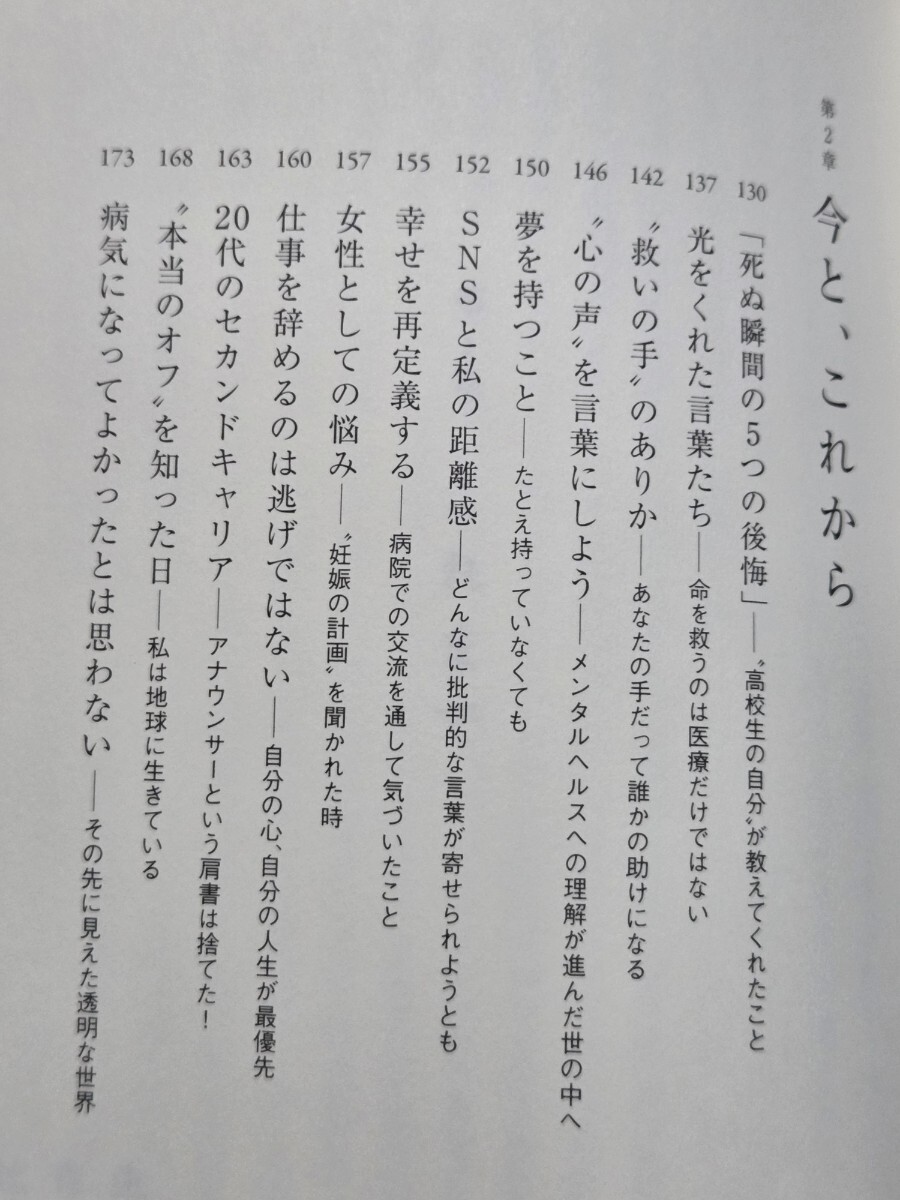 第2章 今と、これから
130 「死ぬ瞬間の5つの後悔」──〝高校生の自分〟が教えてくれたこと
137 光をくれた言葉たち──命を救うのは医療だけではない
142 〝救いの手〟のありか──あなたの手だって誰かの助けになる
146 〝心の声〟を言葉にしよう──メンタルヘルスへの理解が進んだ世の中へ
150 夢を持つこと──たとえ持っていなくても
152 SNSと私の距離感──どんなに批判的な言葉が寄せられようとも
155 幸せを再定義する──病院での交流を通して気づいたこと
157 女性としての悩み──〝妊娠の計画〟を聞かれた時
160 仕事を辞めるのは逃げではない──自分の心、自分の人生が最優先
163 20代のセカンドキャリア──アナウンサーという肩書は捨てた!
168 〝本当のオフ〟を知った日──私は地球に生きている
173 病気になってよかったとは思わない──その先に見えた透明な世界